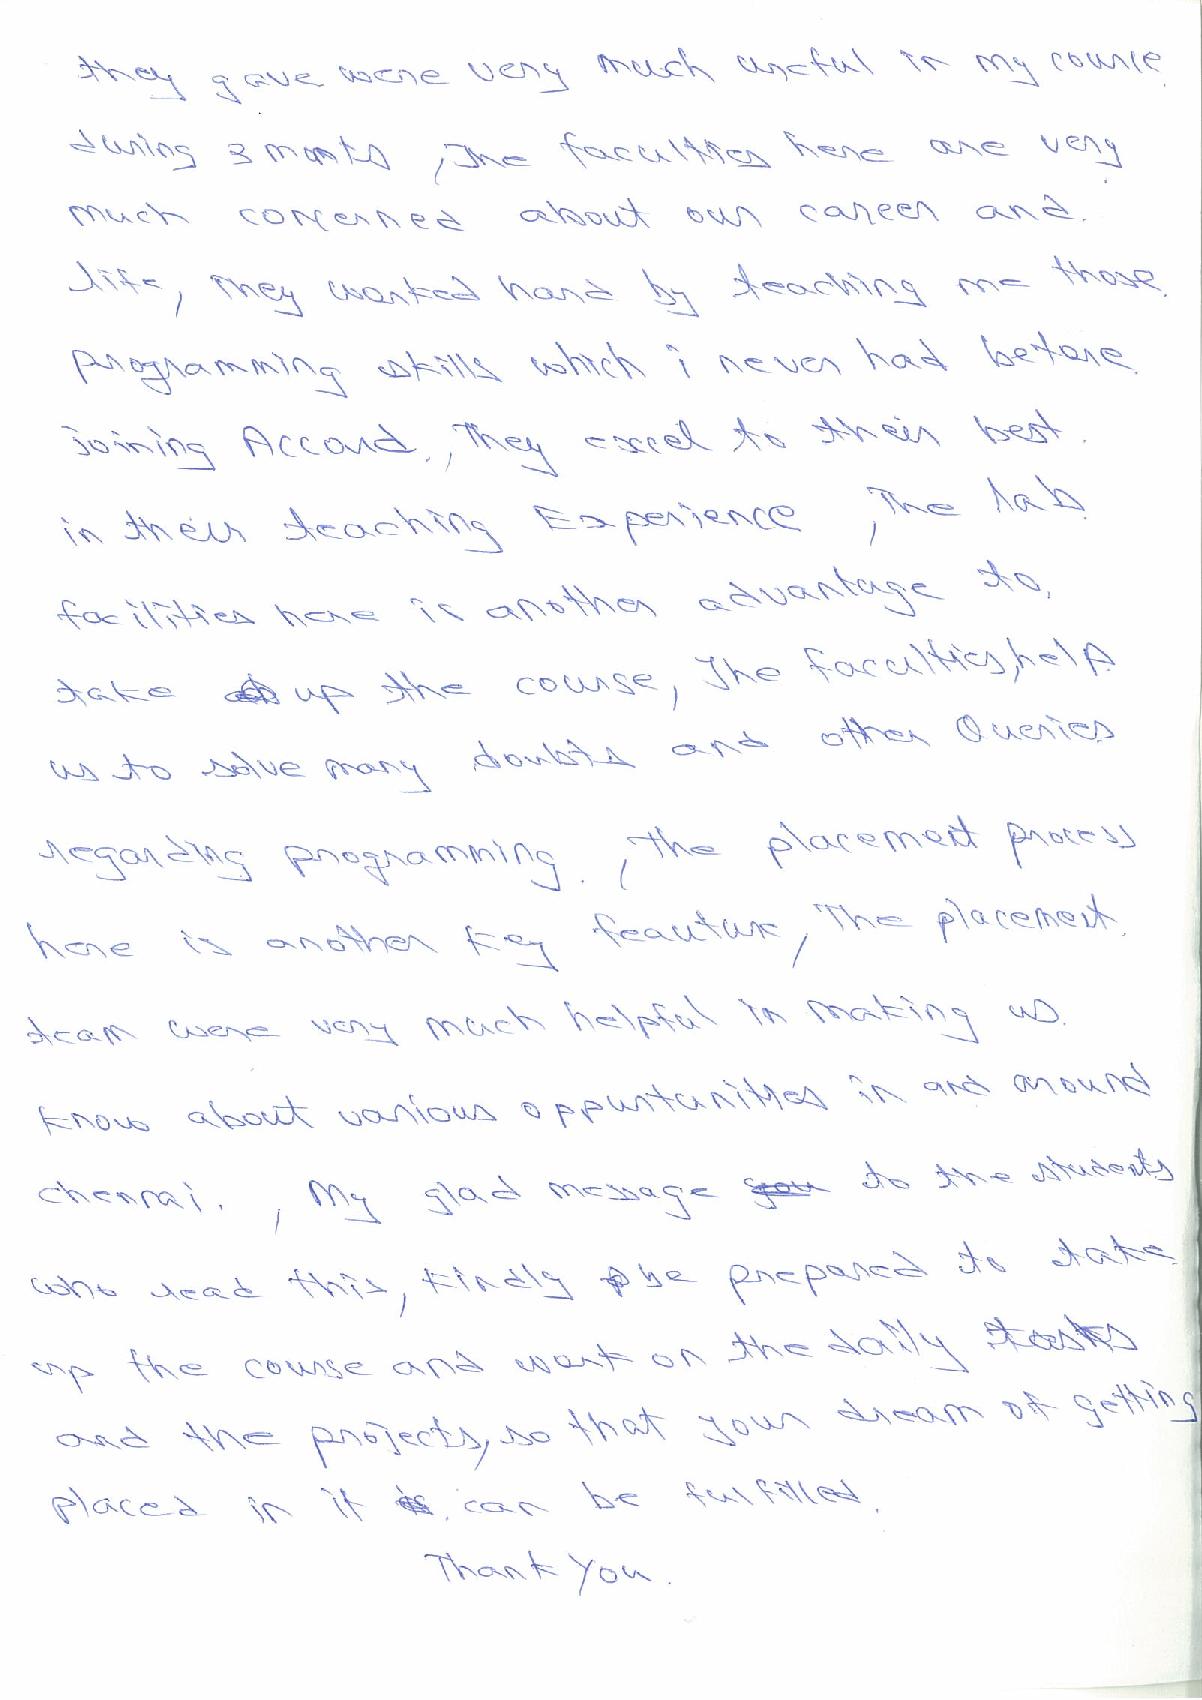 they gave were very much useful in my course
during 3 monts, The faculties here are very
much concerned about our career and.
life, They worked hard by teaching me those
programming skills which i never had before
joining Accord., They excel to their best.
in their teaching Experience, The lab
facilities here is another advantage to,
take up the course, The faculties, help
us to solve many doubts and other Queries
regarding programming., The placement process
here is another key feauture, The placement.
team were very much helpful in making us.
know about various oppurtunities in and around
chennai., My glad message to the students
who read this, kindly be prepared to take
up the course and work on the daily tasks
and the projects, so that your dream of getting
placed in it can be fulfilled.
Thank You.